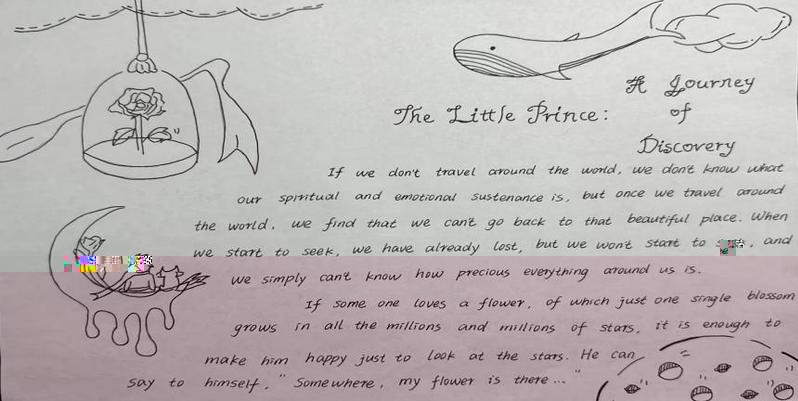 The Little Prince: A Journey of Discovery
If we don't travel around the world, we don't know what
our spiritual and emotional sustenance is, but once we travel around
the world, we find that we can't go back to that beautiful place. When
we start to seek, we have already lost, but we won't start to , and
we simply can't know how precious everything around us is.
If some one loves a flower, of which just one single blossom
grows in all the millions and millions of stars, it is enough to
make him happy just to look at the stars. He can
say to himself, "Somewhere, my flower is there..."